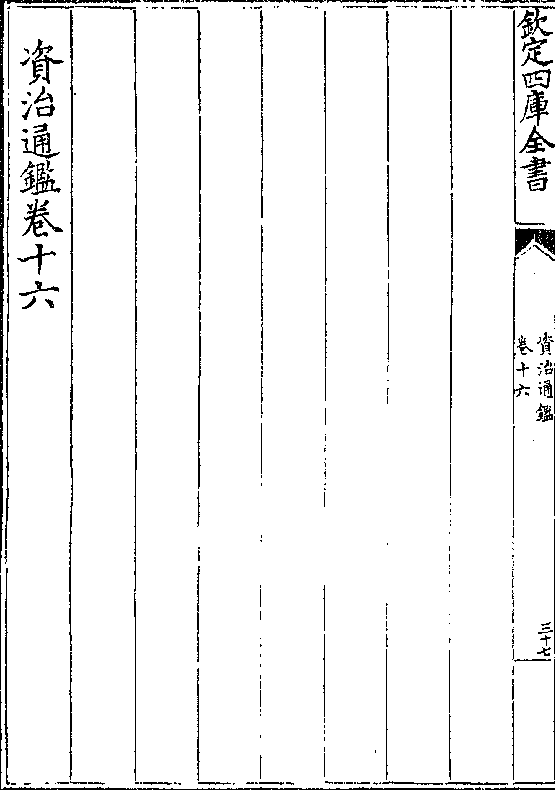 欽定四庫全書
資治通鑑
卷十六
三十七
資治通鑑卷十六